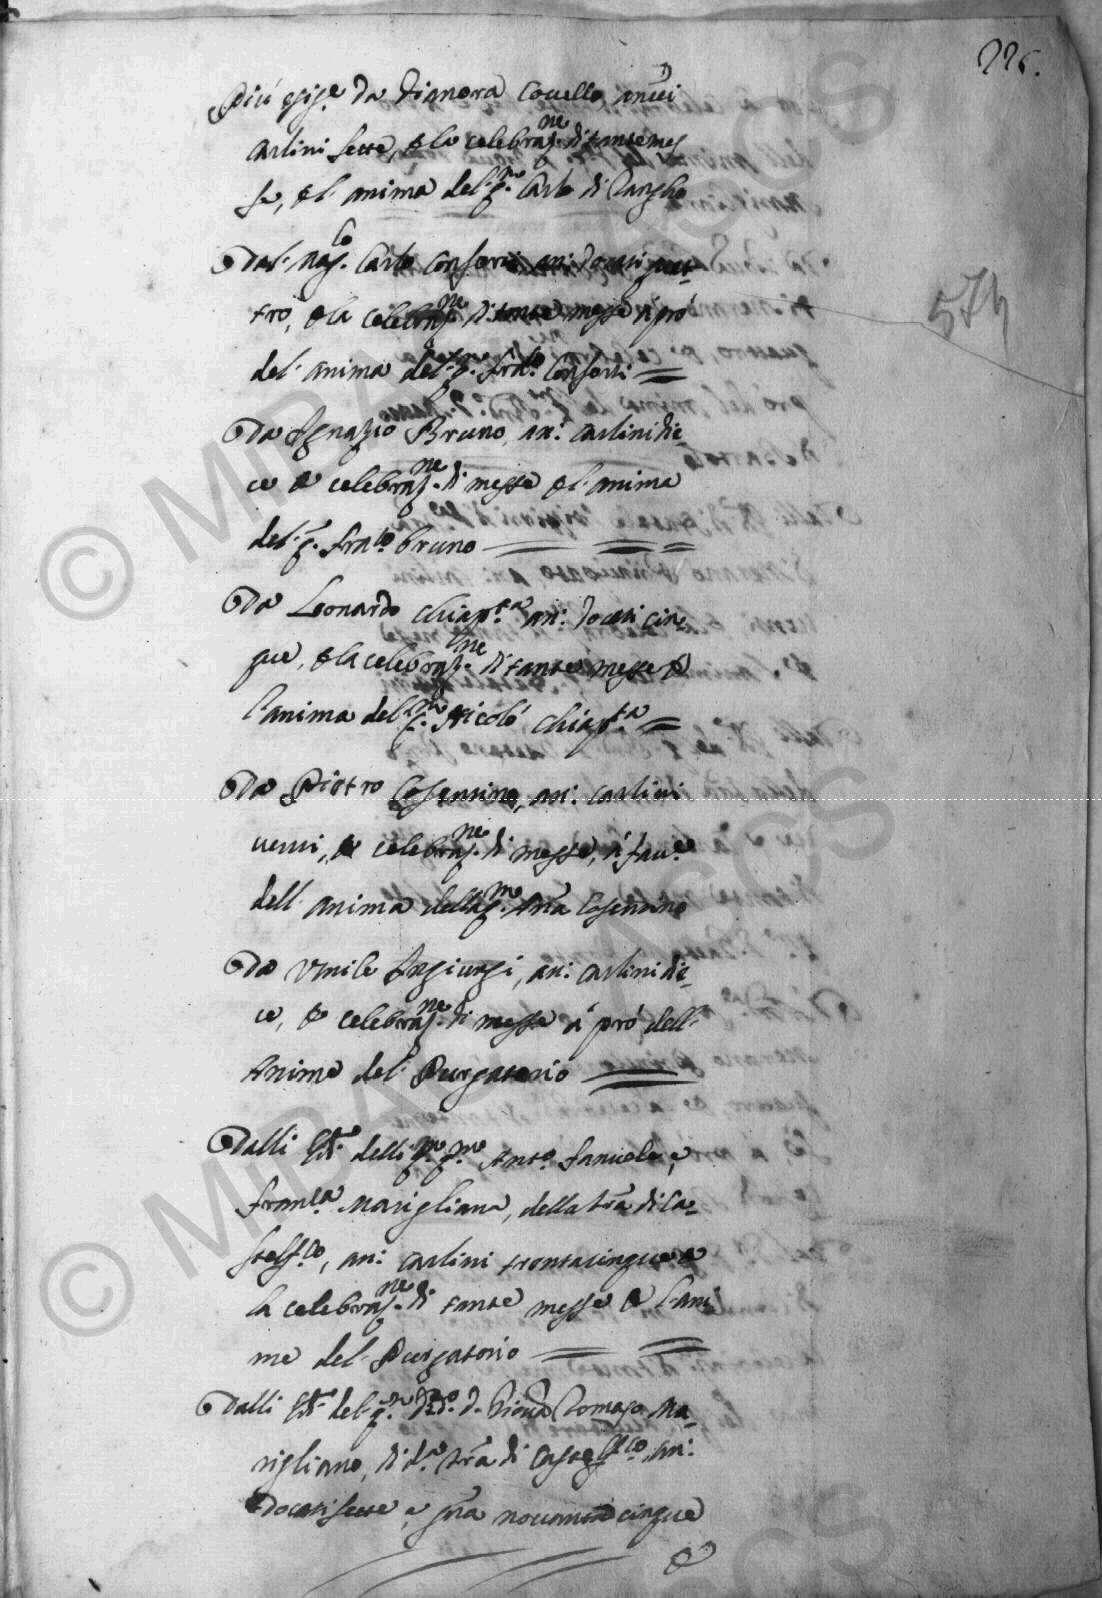 226.
Più esige da Dianora Covello, annui
Carlini sette, p la celebraz.ne di tante mes
se, p l'anima del q.m Carlo di
Dal Mag.co Carlo Conforti an: docati quat-
tro, p la celebraz.ne di tante messe à prò
del anima del q.m Fran.co Conforti
574
Da Ignazio Bruno, an: carlini die-
ce p celebraz.ne di messe p l'anima
del q.m Fran.co bruno
Da Leonardo Chiap.tta an: docati cin-
que, p la celebraz.ne di tante messe p
l'anima del q.m Nicolò Chiap.tta
Da Pietro Cosentino, an: carlini
venti, p celebraz.ne di messe, à fav.e
dell'anima della q.m Anna Cosentino
Da an: carlini die-
ce, p celebraz.ne di messe à prò dell'
Anime del Purgatorio
Dalli Er.di delli q.m q.m Ant.o Fanuele, e
Fran.ca Marigliana, della trâ di Ca-
stelf.co, an: carlini trentacinque p
la celebraz.ne di tante messe p l'ani
me del Purgatorio
Dalli Er.di del q.m D. Tomaso Ma-
rigliano, di d.a trâ di Castelf.co, an:
docati sette e grâ novanta cinque
p
© MIBAC ASCS
© MIBAC ASCS
ASCS